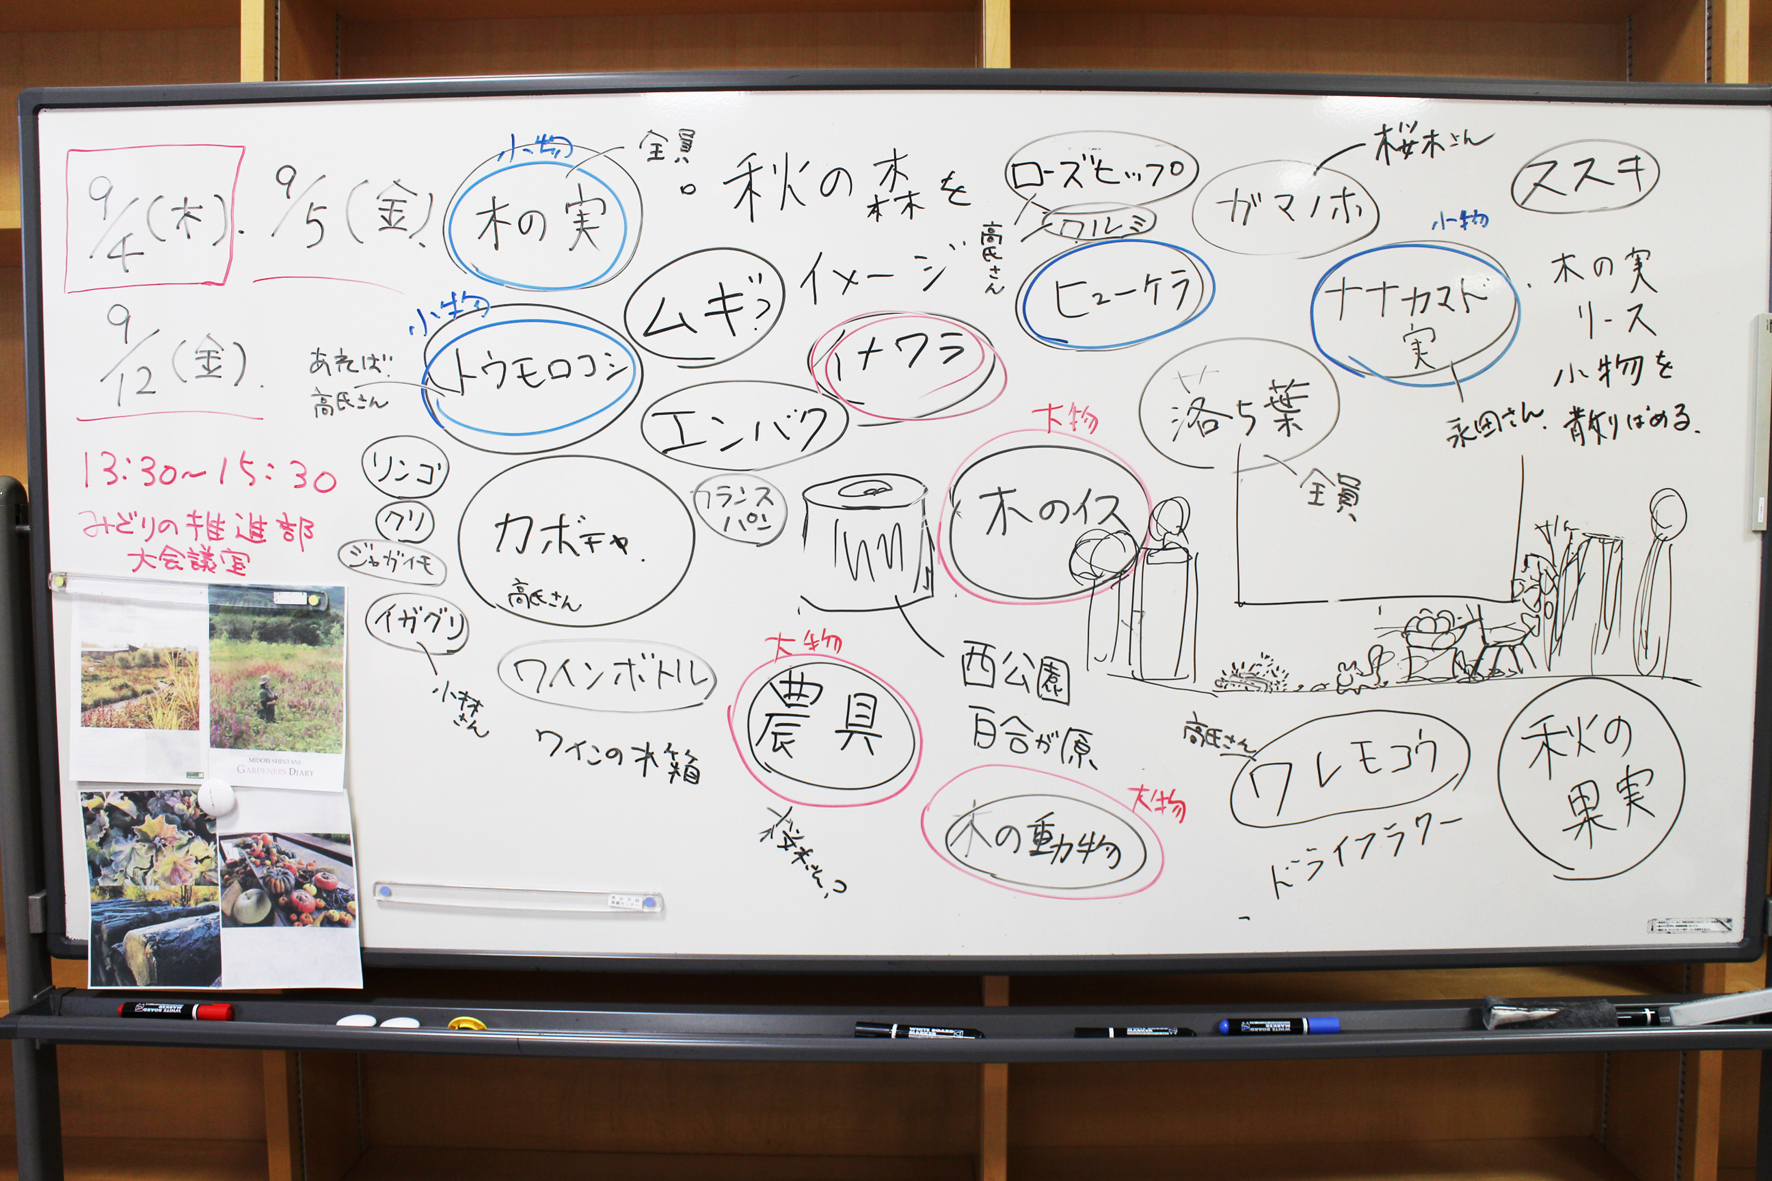 9/4(木).
9/5(金).
9/12(金).
13:30〜15:30
みどりの推進部
大会議室
小物
木の実
全員
。秋の森を
イメージ
小物
トウモロコシ
あれば
高氏さん
ムギ?
イナワラ
エンバク
リンゴ
クリ
ジャガイモ
イガグリ
小林
さん
カボチャ.
高氏さん
フランス
パン
ワインボトル
ワインの木箱
ローズヒップ
クルミ
高氏さん
ヒューケラ
ガマノホ
桜木さん
ススキ
小物
ナナカマド
実
永田さん.
・木の実
リース
小物を
散りばめる.
落ち葉
全員
大物
木のイス
西公園
百合が原
大物
農具
桜木さん?
大物
木の動物
高氏さん
ワレモコウ
ドライフラワー
秋の
果実
MIDORI SHINTANI
GARDENERS DIARY